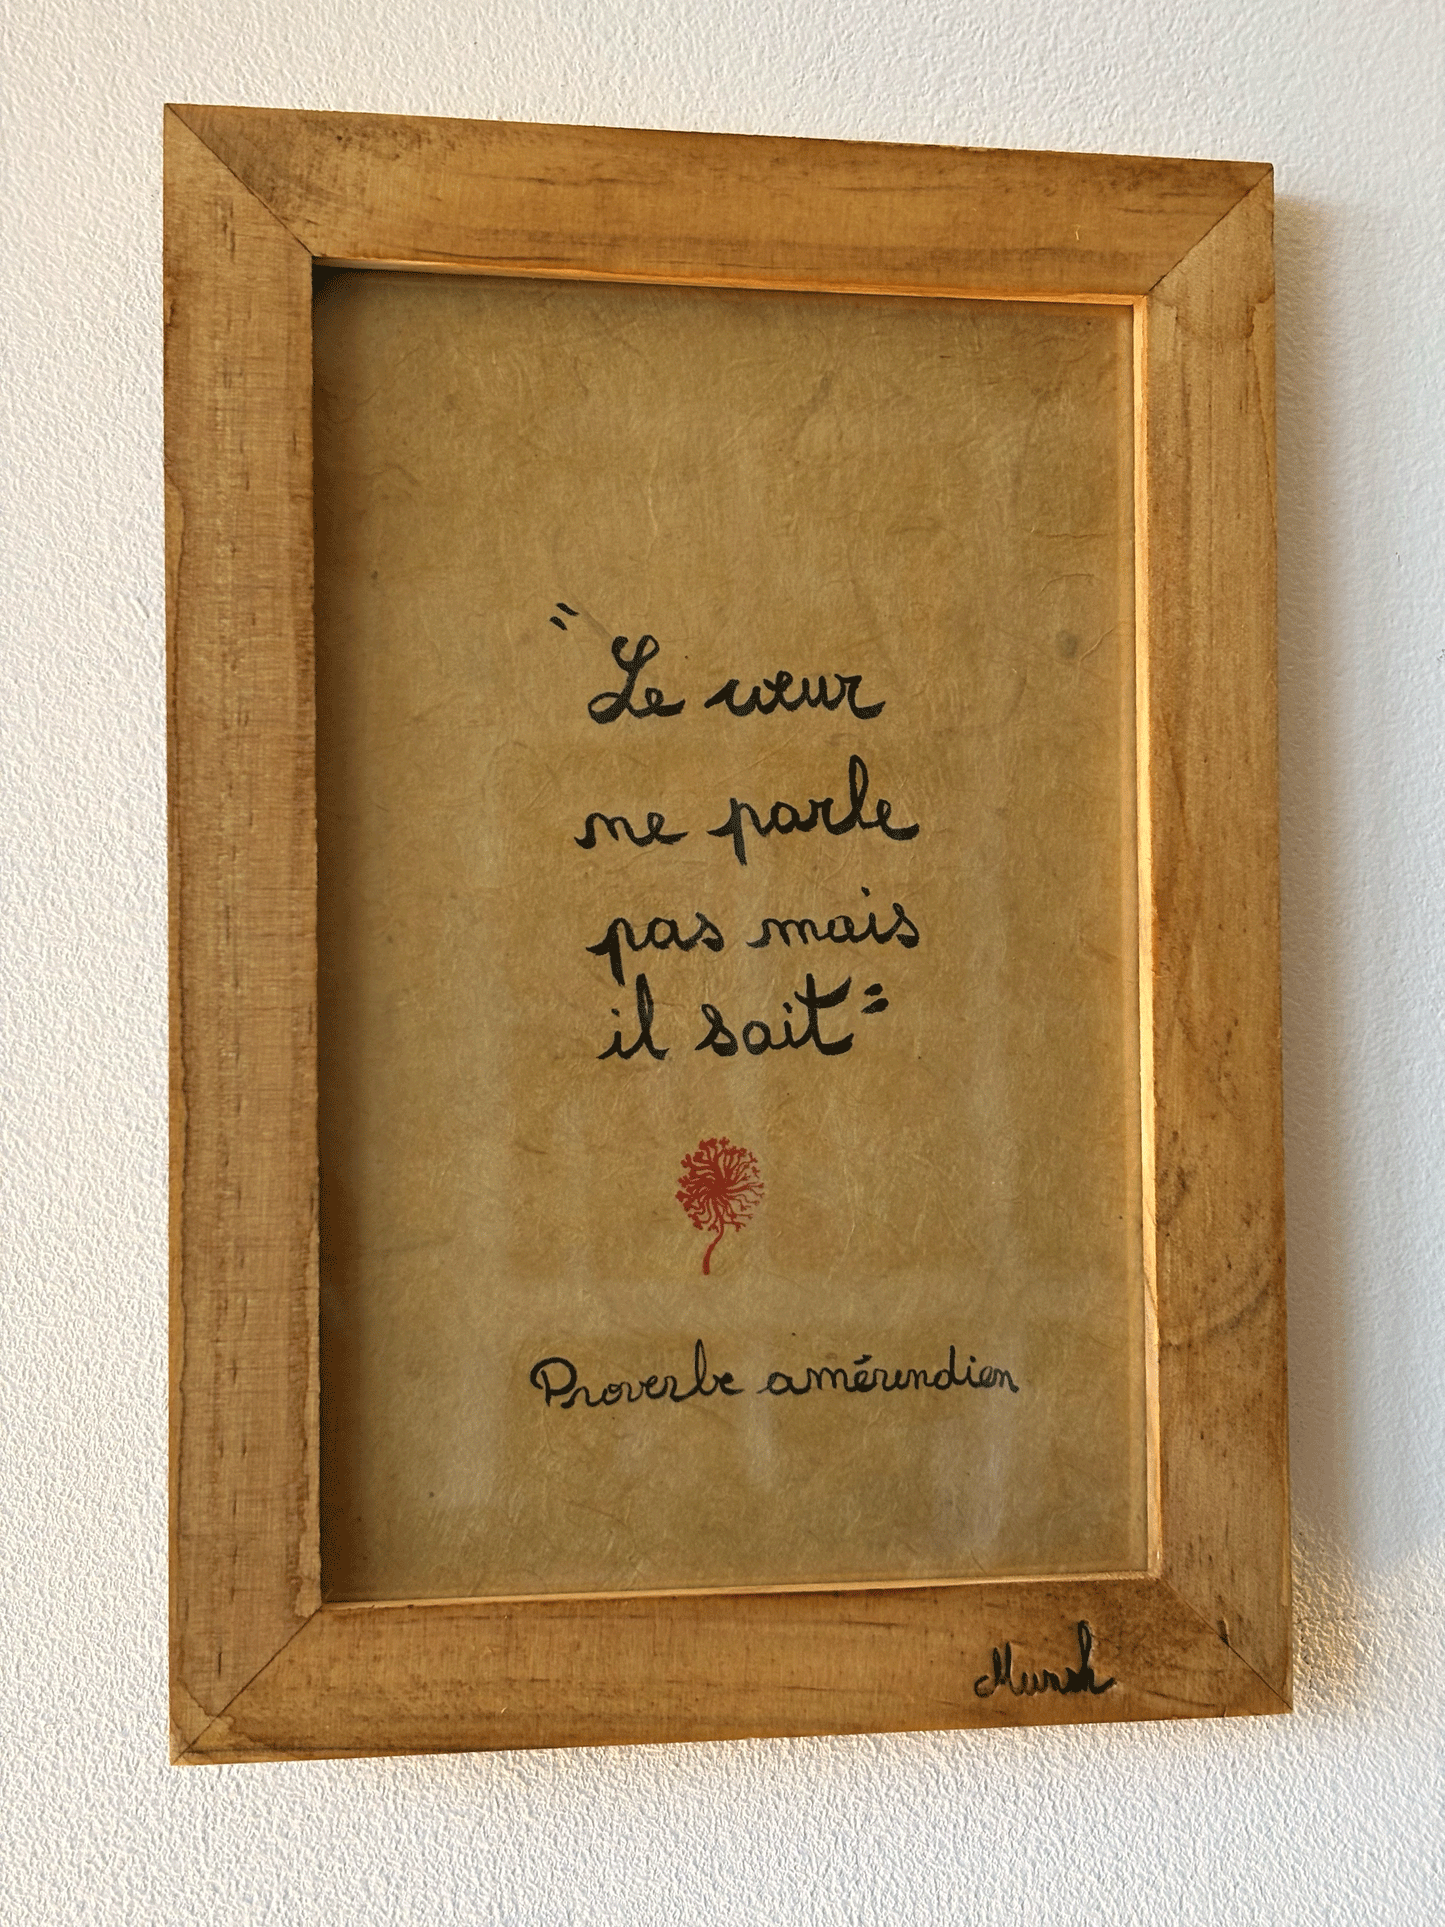 "Le cœur
ne parle
pas mais
il sait"
Proverbe amérendien
Munsh